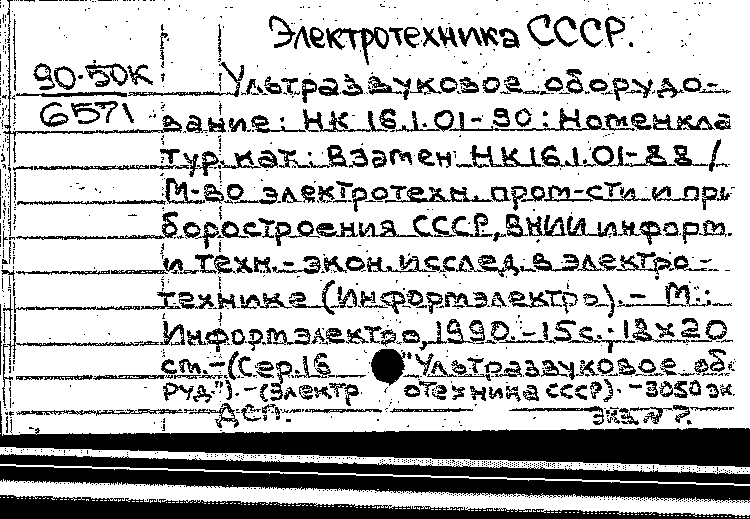 Электротехника СССР.
90-50К Ультразвуковое оборудо-
6571 вание: НК 16.1.01-90: Номенкла
тур. кат.: Взамен НК16.1.01-88 /
М-во электротехн. пром-сти и при
боростроения СССР, ВНИИ информ.
и техн.-экон. исслед. в электро-
технике (Информэлектро). - М.:
Информэлектро, 1990. - 15с.; 13х20
см. - (Сер.16 "Ультразвуковое обо
руд"). - (Электротехника СССР). - 3050 эк
ДСП. экз. №